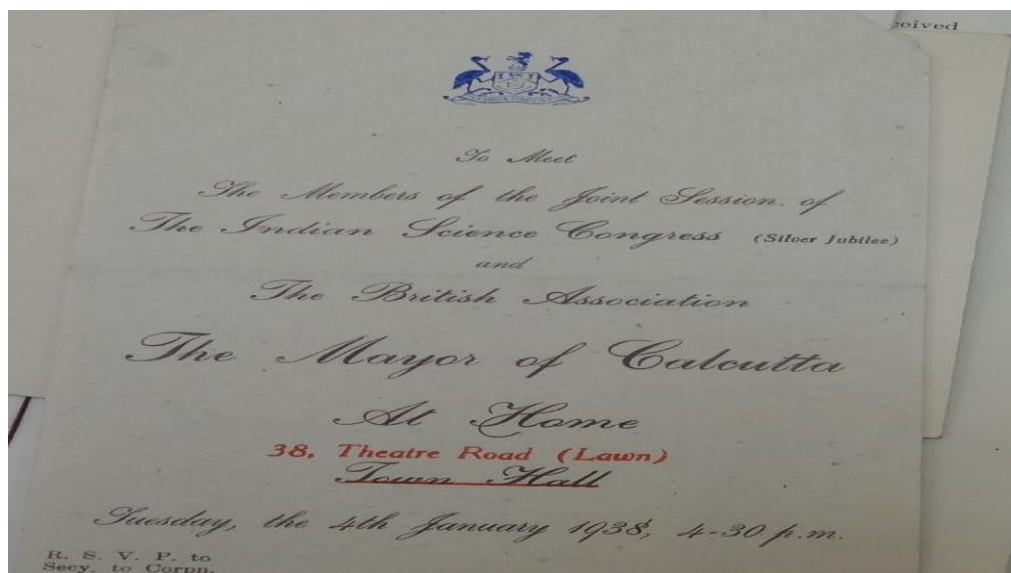 ceived
To Meet
The Members of the Joint Session of
The Indian Science Congress (Silver Jubilee)
and
The British Association
The Mayor of Calcutta
At Home
38, Theatre Road (Lawn)
Town Hall
Tuesday, the 4th January 1938, 4-30 p.m.
R. S. V. P. to
Secy. to Corpn.